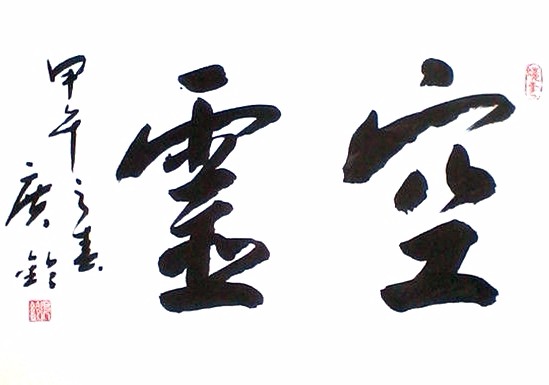 空靈
甲午之春
廣鈴